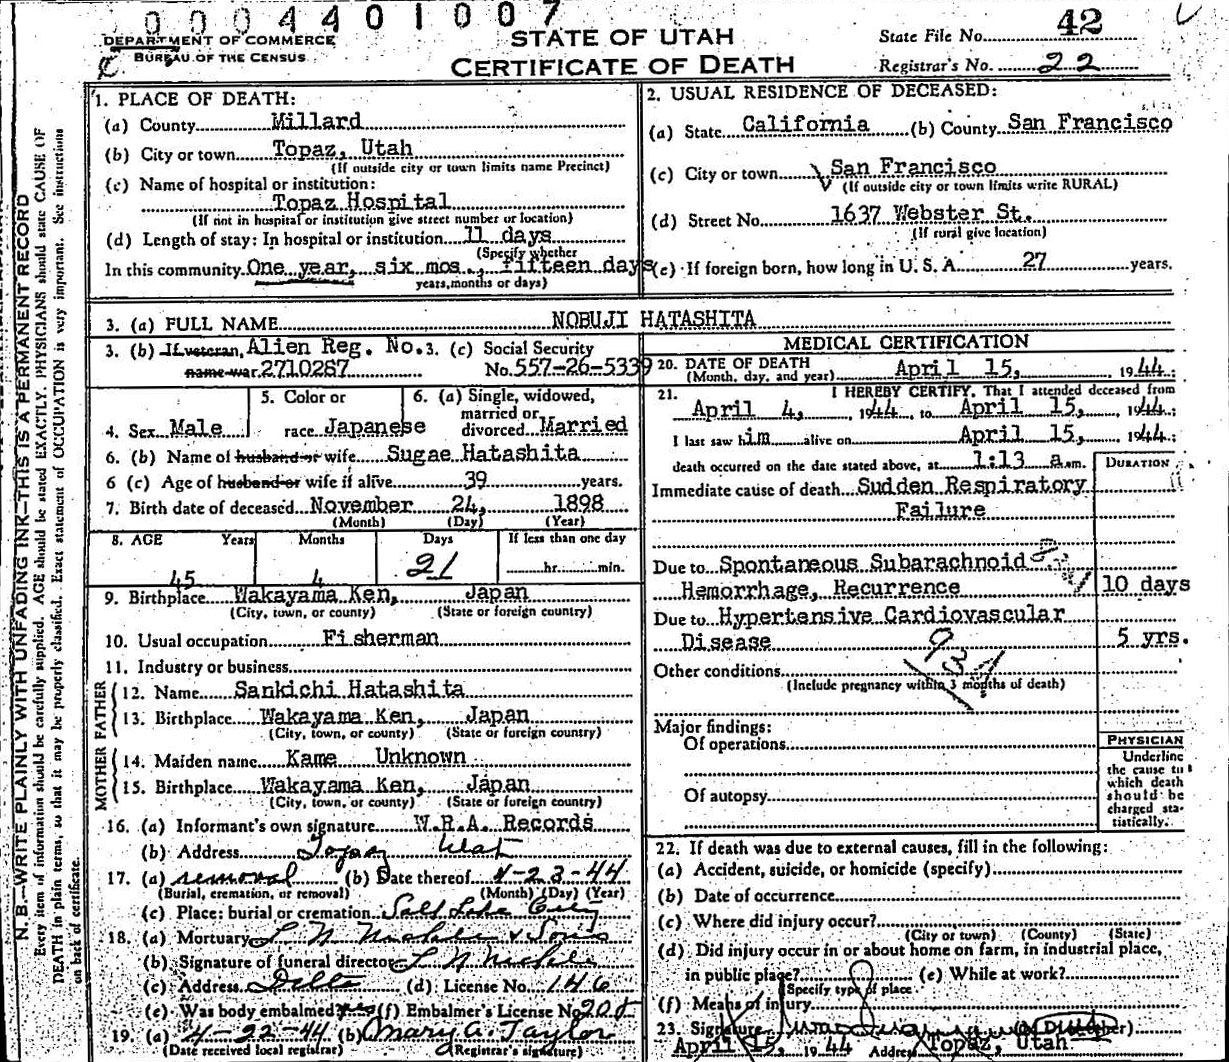 0004401007
DEPARTMENT OF COMMERCE
BUREAU OF THE CENSUS
STATE OF UTAH
CERTIFICATE OF DEATH
State File No. 42
Registrar's No. 22
N. B.—WRITE PLAINLY WITH UNFADING INK—THIS IS A PERMANENT RECORD
Every item of information should be carefully supplied. AGE should be stated EXACTLY. PHYSICIANS should state CAUSE OF
DEATH in plain terms, so that it may be properly classified. Exact statement of OCCUPATION is very important. See instructions
on back of certificate.
1. PLACE OF DEATH:
(a) County Millard
(b) City or town Topaz, Utah
(If outside city or town limits name Precinct)
(c) Name of hospital or institution:
Topaz Hospital
(If not in hospital or institution give street number or location)
(d) Length of stay: In hospital or institution 11 days
(Specify whether
In this community One year, six mos., fifteen days
years, months or days)
2. USUAL RESIDENCE OF DECEASED:
(a) State California (b) County San Francisco
(c) City or town San Francisco
(If outside city or town limits write RURAL)
(d) Street No. 1637 Webster St.
(If rural give location)
(e) If foreign born, how long in U. S. A. 27 years.
3. (a) FULL NAME NOBUJI HATASHITA
3. (b) If veteran, Alien Reg. No. 3. (c) Social Security
name war 2710287 No. 557-26-5339
4. Sex Male
5. Color or
race Japanese
6. (a) Single, widowed,
married or
divorced Married
6. (b) Name of husband or wife Sugae Hatashita
6 (c) Age of husband or wife if alive 39 years.
7. Birth date of deceased November 24, 1898
(Month) (Day) (Year)
8. AGE Years Months Days If less than one day
45 4 21 hr. min.
9. Birthplace Wakayama Ken, Japan
(City, town, or county) (State or foreign country)
10. Usual occupation Fisherman
11. Industry or business
FATHER
12. Name Sankichi Hatashita
13. Birthplace Wakayama Ken, Japan
(City, town, or county) (State or foreign country)
MOTHER
14. Maiden name Kame Unknown
15. Birthplace Wakayama Ken, Japan
(City, town, or county) (State or foreign country)
16. (a) Informant's own signature W.R.A. Records
(b) Address Topaz Utah
17. (a) removal (b) Date thereof 4-23-44
(Burial, cremation, or removal) (Month) (Day) (Year)
(c) Place: burial or cremation Salt Lake City
18. (a) Mortuary L N Nickle & Sons
(b) Signature of funeral director L N Nickle
(c) Address Delta (d) License No. 146
(e) Was body embalmed yes (f) Embalmer's License No. 205
19. (a) 4-22-44 (b) Mary A. Taylor
(Date received local registrar) (Registrar's signature)
MEDICAL CERTIFICATION
20. DATE OF DEATH
(Month, day, and year) April 15, 1944
21. I HEREBY CERTIFY, That I attended deceased from
April 4, 1944, to April 15, 1944
I last saw him alive on April 15, 1944;
death occurred on the date stated above, at 1:13 a.m.
DURATION
Immediate cause of death Sudden Respiratory
Failure
Due to Spontaneous Subarachnoid
Hemorrhage, Recurrence 10 days
Due to Hypertensive Cardiovascular
Disease 5 yrs.
Other conditions
(Include pregnancy within 3 months of death)
Major findings:
Of operations
Of autopsy
PHYSICIAN
Underline
the cause to
which death
should be
charged sta-
tistically.
22. If death was due to external causes, fill in the following:
(a) Accident, suicide, or homicide (specify)
(b) Date of occurrence
(c) Where did injury occur?
(City or town) (County) (State)
(d) Did injury occur in or about home on farm, in industrial place,
in public place? (e) While at work?
(Specify type of place
(f) Means of injury
23. Signature
April 15, 1944 Address Topaz, Utah